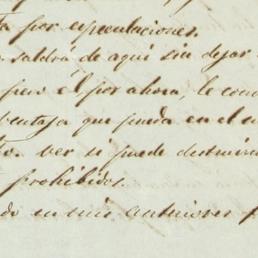 por especulaciones.
saldrá de aquí sin dejar
pero él por ahora, le con
ventaja que pueda en el
ver si puede destruir
prohibidos.
do en mis anteriores